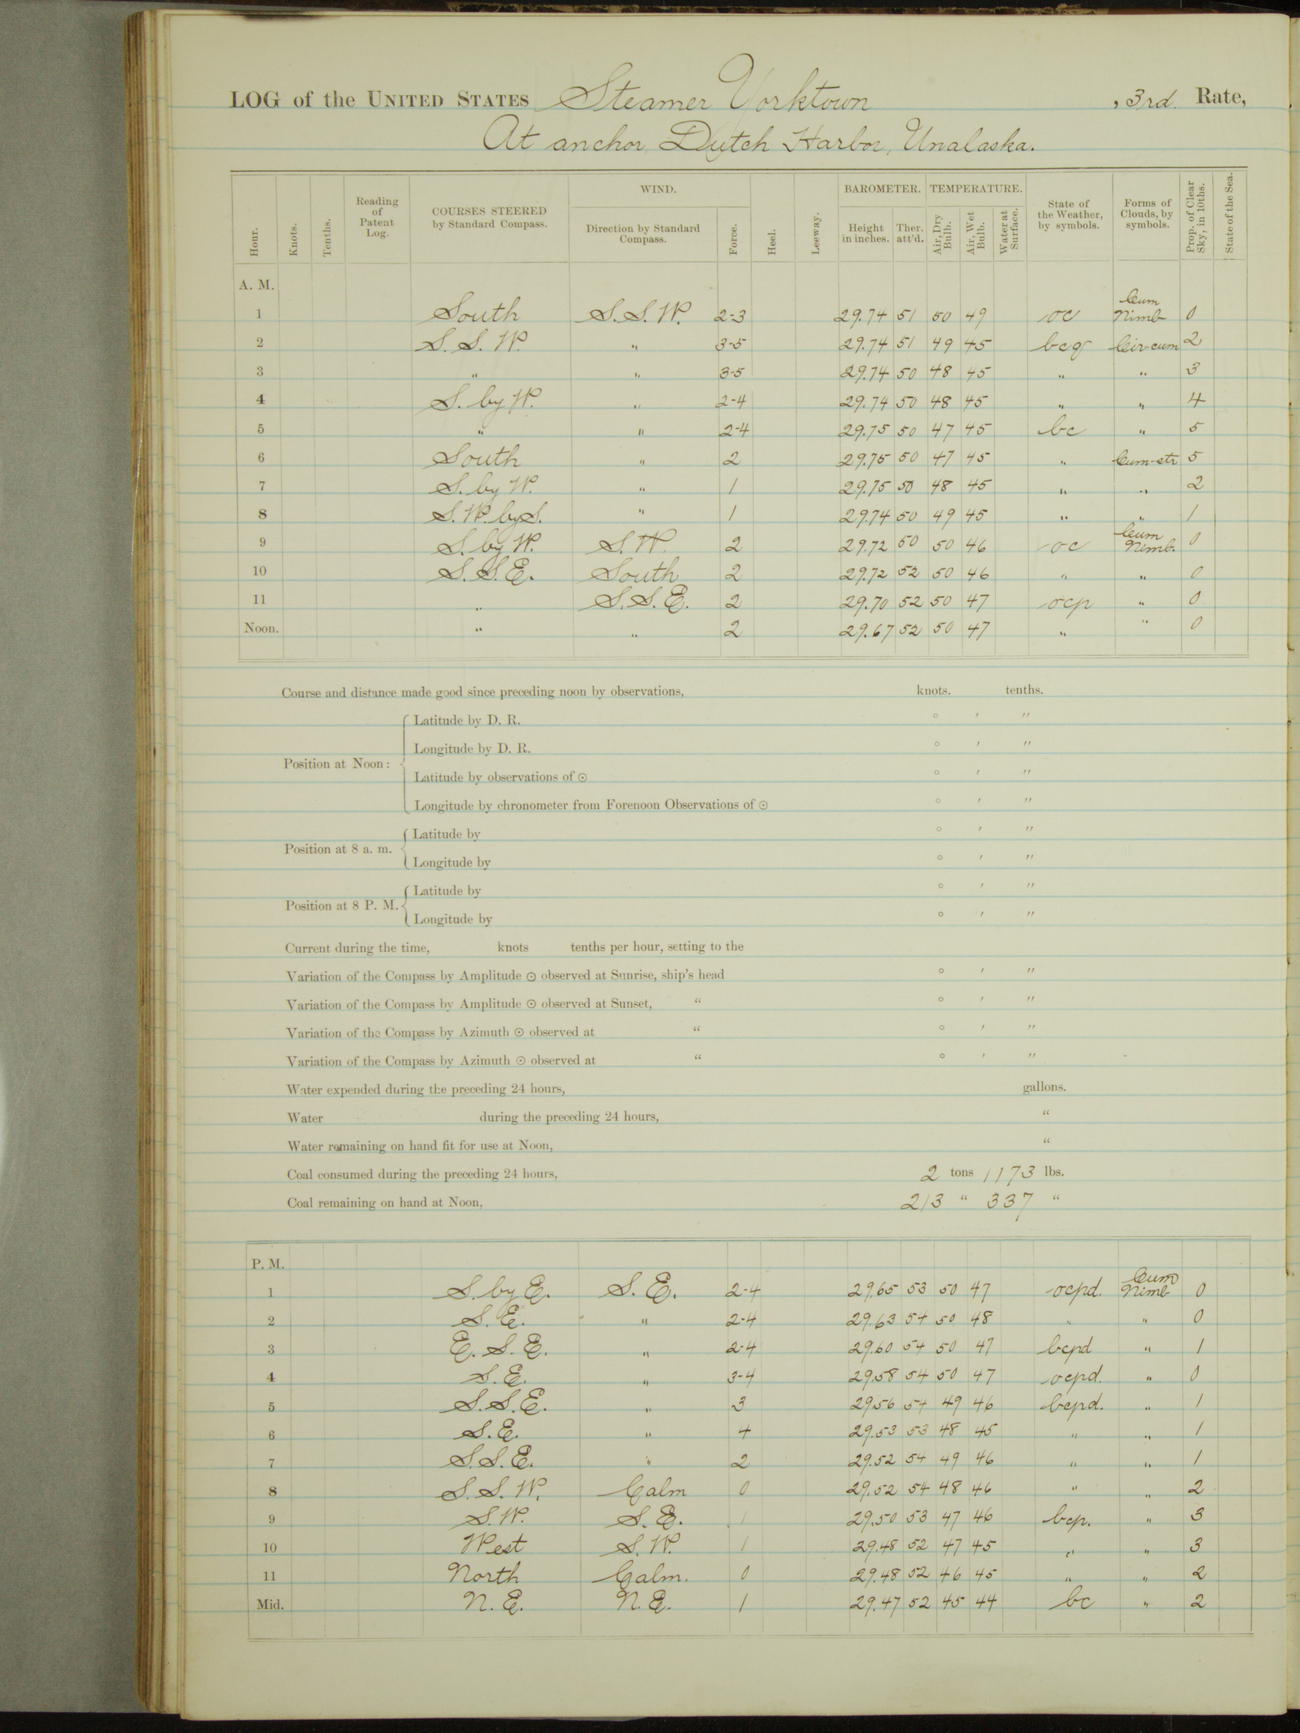 LOG of the UNITED STATES Steamer Yorktown , 3rd. Rate,
At anchor, Dutch Harbor, Unalaska.
Hour. Knots. Tenths. Reading of Patent Log. COURSES STEERED by Standard Compass. WIND. Direction by Standard Compass. Force. Heel. Leeway. BAROMETER. Height in inches. Ther. att'd. TEMPERATURE. Air, Dry Bulb. Air, Wet Bulb. Water at Surface. State of the Weather, by symbols. Forms of Clouds, by symbols. Prop. of Clear Sky, in 10ths. State of the Sea.
A. M.
1 South S.S.W. 2-3 29.74 51 50 49 oc Cum Nimb 0
2 S.S.W. " 3-5 29.74 51 49 45 bcq Cir-cum 2
3 " " 3-5 29.74 50 48 45 " " 3
4 S. by W. " 2-4 29.74 50 48 45 " " 4
5 " " 2-4 29.75 50 47 45 bc " 5
6 South " 2 29.75 50 47 45 " Cum-str 5
7 S. by W. " 1 29.75 50 48 45 " " 2
8 S.W. by S. " 1 29.74 50 49 45 " " 1
9 S. by W. S.W. 2 29.72 50 50 46 oc Cum Nimb. 0
10 S.S.E. South 2 29.72 52 50 46 " " 0
11 " S.S.E. 2 29.70 52 50 47 ocp " 0
Noon. " " 2 29.67 52 50 47 " " 0
Course and distance made good since preceding noon by observations, knots. tenths.
Position at Noon:
Latitude by D. R. ° ' "
Longitude by D. R. ° ' "
Latitude by observations of ☉ ° ' "
Longitude by chronometer from Forenoon Observations of ☉ ° ' "
Position at 8 a. m.
Latitude by ° ' "
Longitude by ° ' "
Position at 8 P. M.
Latitude by ° ' "
Longitude by ° ' "
Current during the time, knots tenths per hour, setting to the
Variation of the Compass by Amplitude ☉ observed at Sunrise, ship's head ° ' "
Variation of the Compass by Amplitude ☉ observed at Sunset, " ° ' "
Variation of the Compass by Azimuth ☉ observed at " ° ' "
Variation of the Compass by Azimuth ☉ observed at " ° ' "
Water expended during the preceding 24 hours, gallons.
Water during the preceding 24 hours, "
Water remaining on hand fit for use at Noon, "
Coal consumed during the preceding 24 hours, 2 tons 1173 lbs.
Coal remaining on hand at Noon, 213 " 337 "
P. M.
1 S. by E. S.E. 2-4 29.65 53 50 47 ocpd. Cum Nimb 0
2 S.E. " 2-4 29.63 54 50 48 " " 0
3 E.S.E. " 2-4 29.60 54 50 47 bcpd " 1
4 S.E. " 3-4 29.58 54 50 47 ocpd. " 0
5 S.S.E. " 3 29.56 54 49 46 bcpd. " 1
6 S.E. " 4 29.53 53 48 45 " " 1
7 S.S.E. " 2 29.52 54 49 46 " " 1
8 S.S.W. Calm 0 29.52 54 48 46 " " 2
9 S.W. S.E. 1 29.50 53 47 46 bcp. " 3
10 West S.W. 1 29.48 52 47 45 " " 3
11 North Calm. 0 29.48 52 46 45 " " 2
Mid. N.E. N.E. 1 29.47 52 45 44 bc " 2